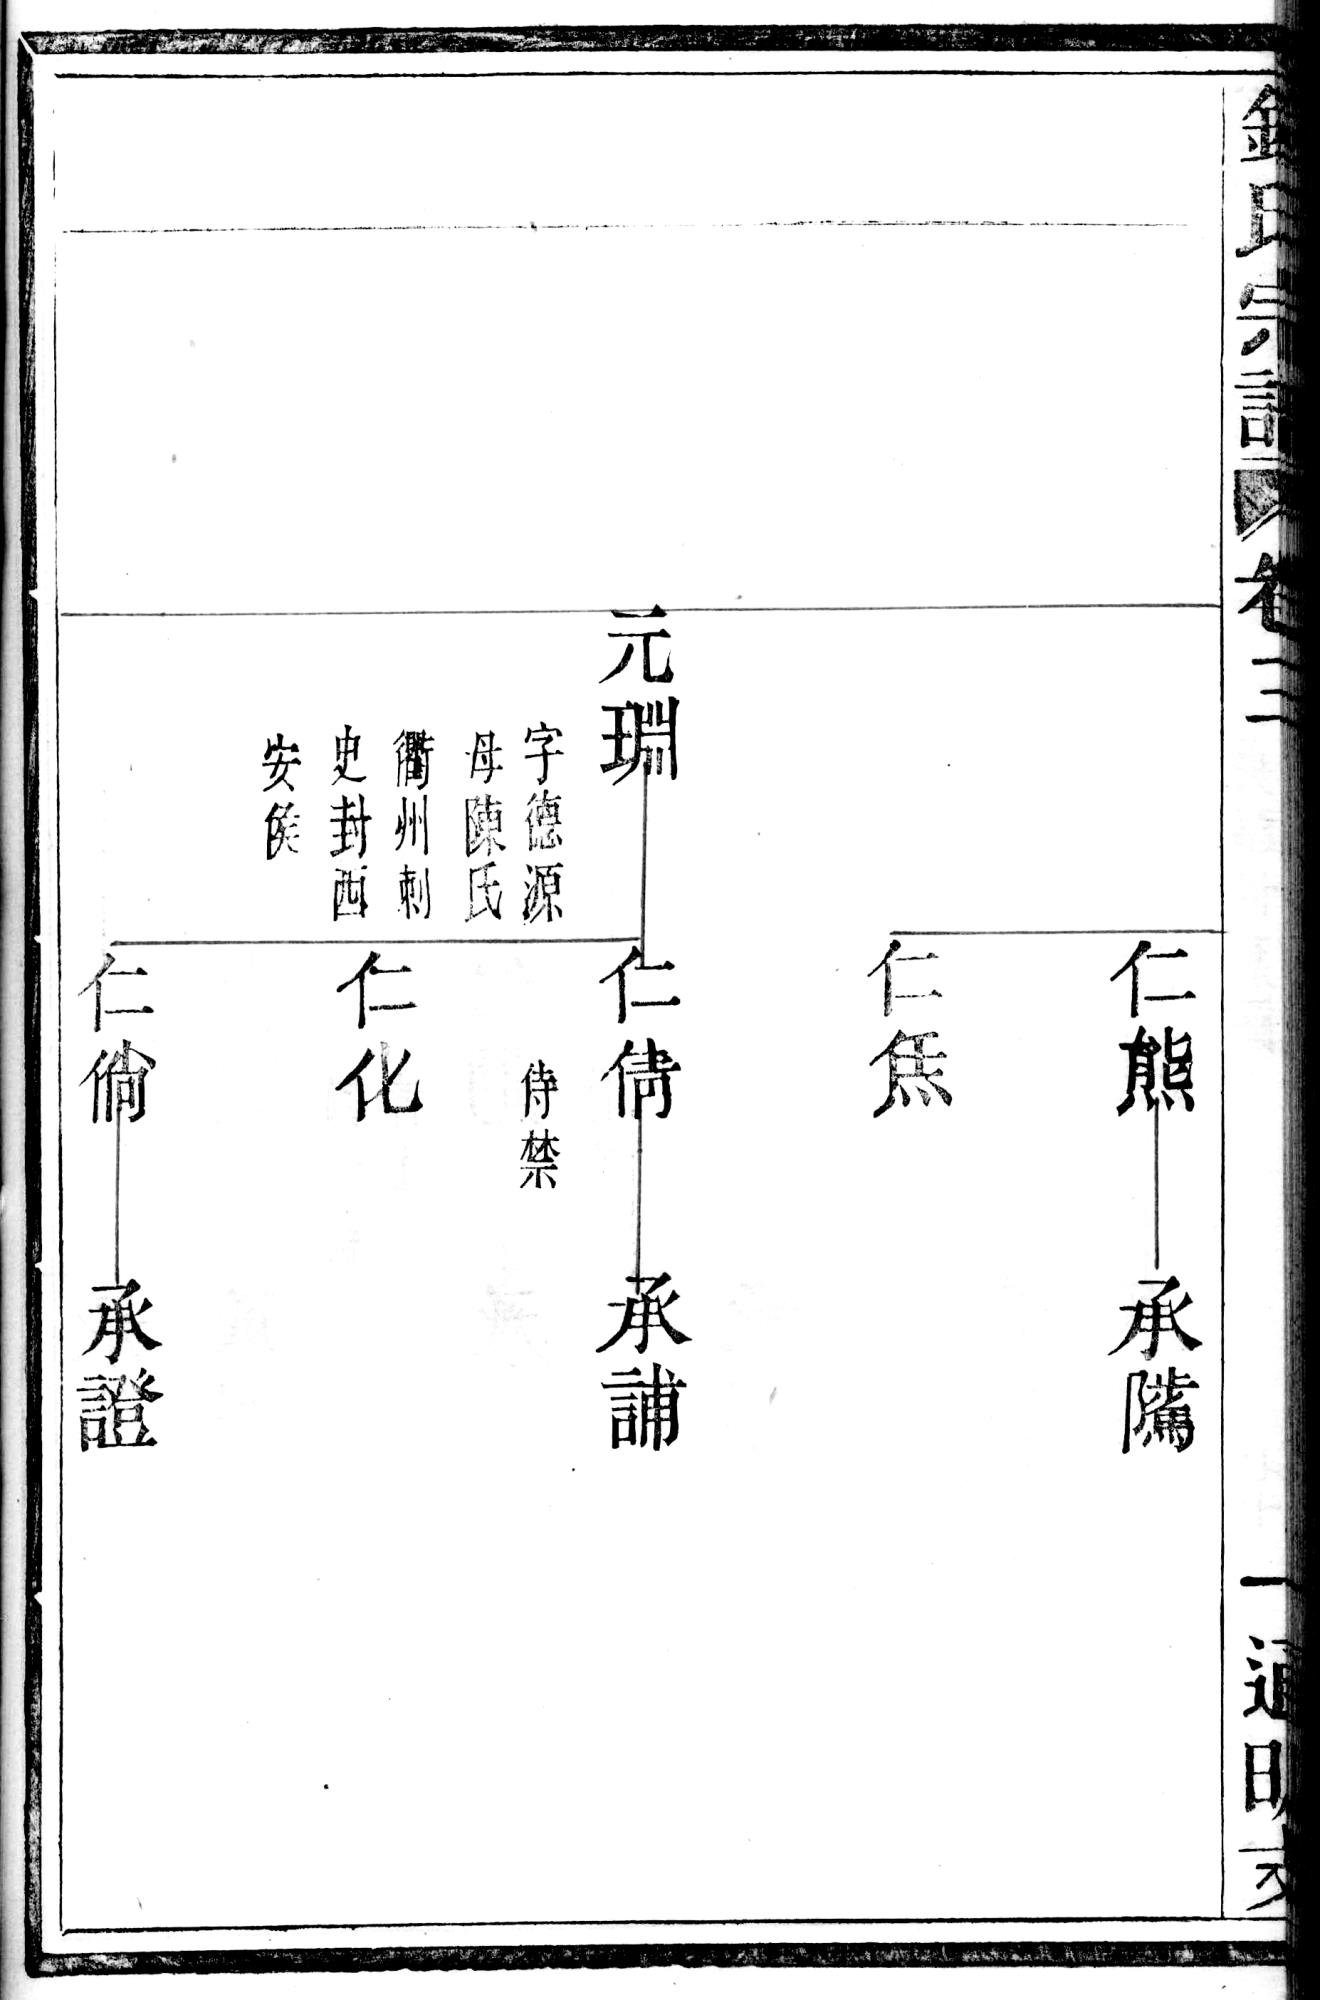 氏宗譜 卷三 一 通明支
仁熊
承隲
仁恁
元㴊
字德源
母陳氏
衢州刺
史封西
安侯
仁倩
侍禁
承誧
仁化
仁倘
承證